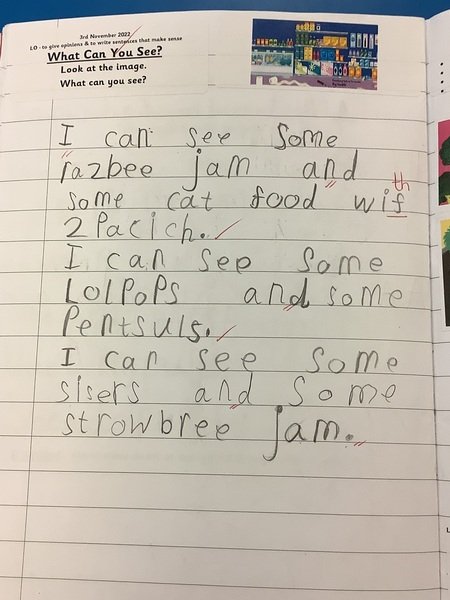 3rd November 2022
LO - to give opinions & to write sentences that make sense
What Can You See?
Look at the image.
What can you see?
I can see some
razbee jam and
th
some cat food wif
2 Pacich.
I can see some
LolPoPs and some
Pentsuls.
I can see some
sisers and some
strowbree jam.